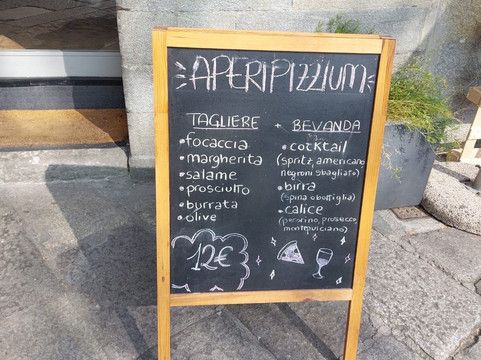 APERIPIZZIUM
TAGLIERE + BEVANDA
•focaccia
•margherita
•salame
•prosciutto
•burrata
•olive
•cocktail
(spritz, americano,
negroni sbagliato)
•birra
(spina o bottiglia)
•calice
(pecorino, prosecco,
montepulciano)
12€